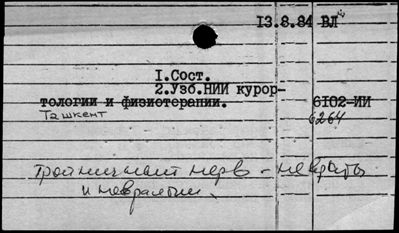 13.8.84 ВЛ
I.Сост.
2.Узб.НИИ курор-
тологии и физиотерапии. 6102-ИИ
Ташкент 6264
тройничный нерв - невриты
и невралгии.